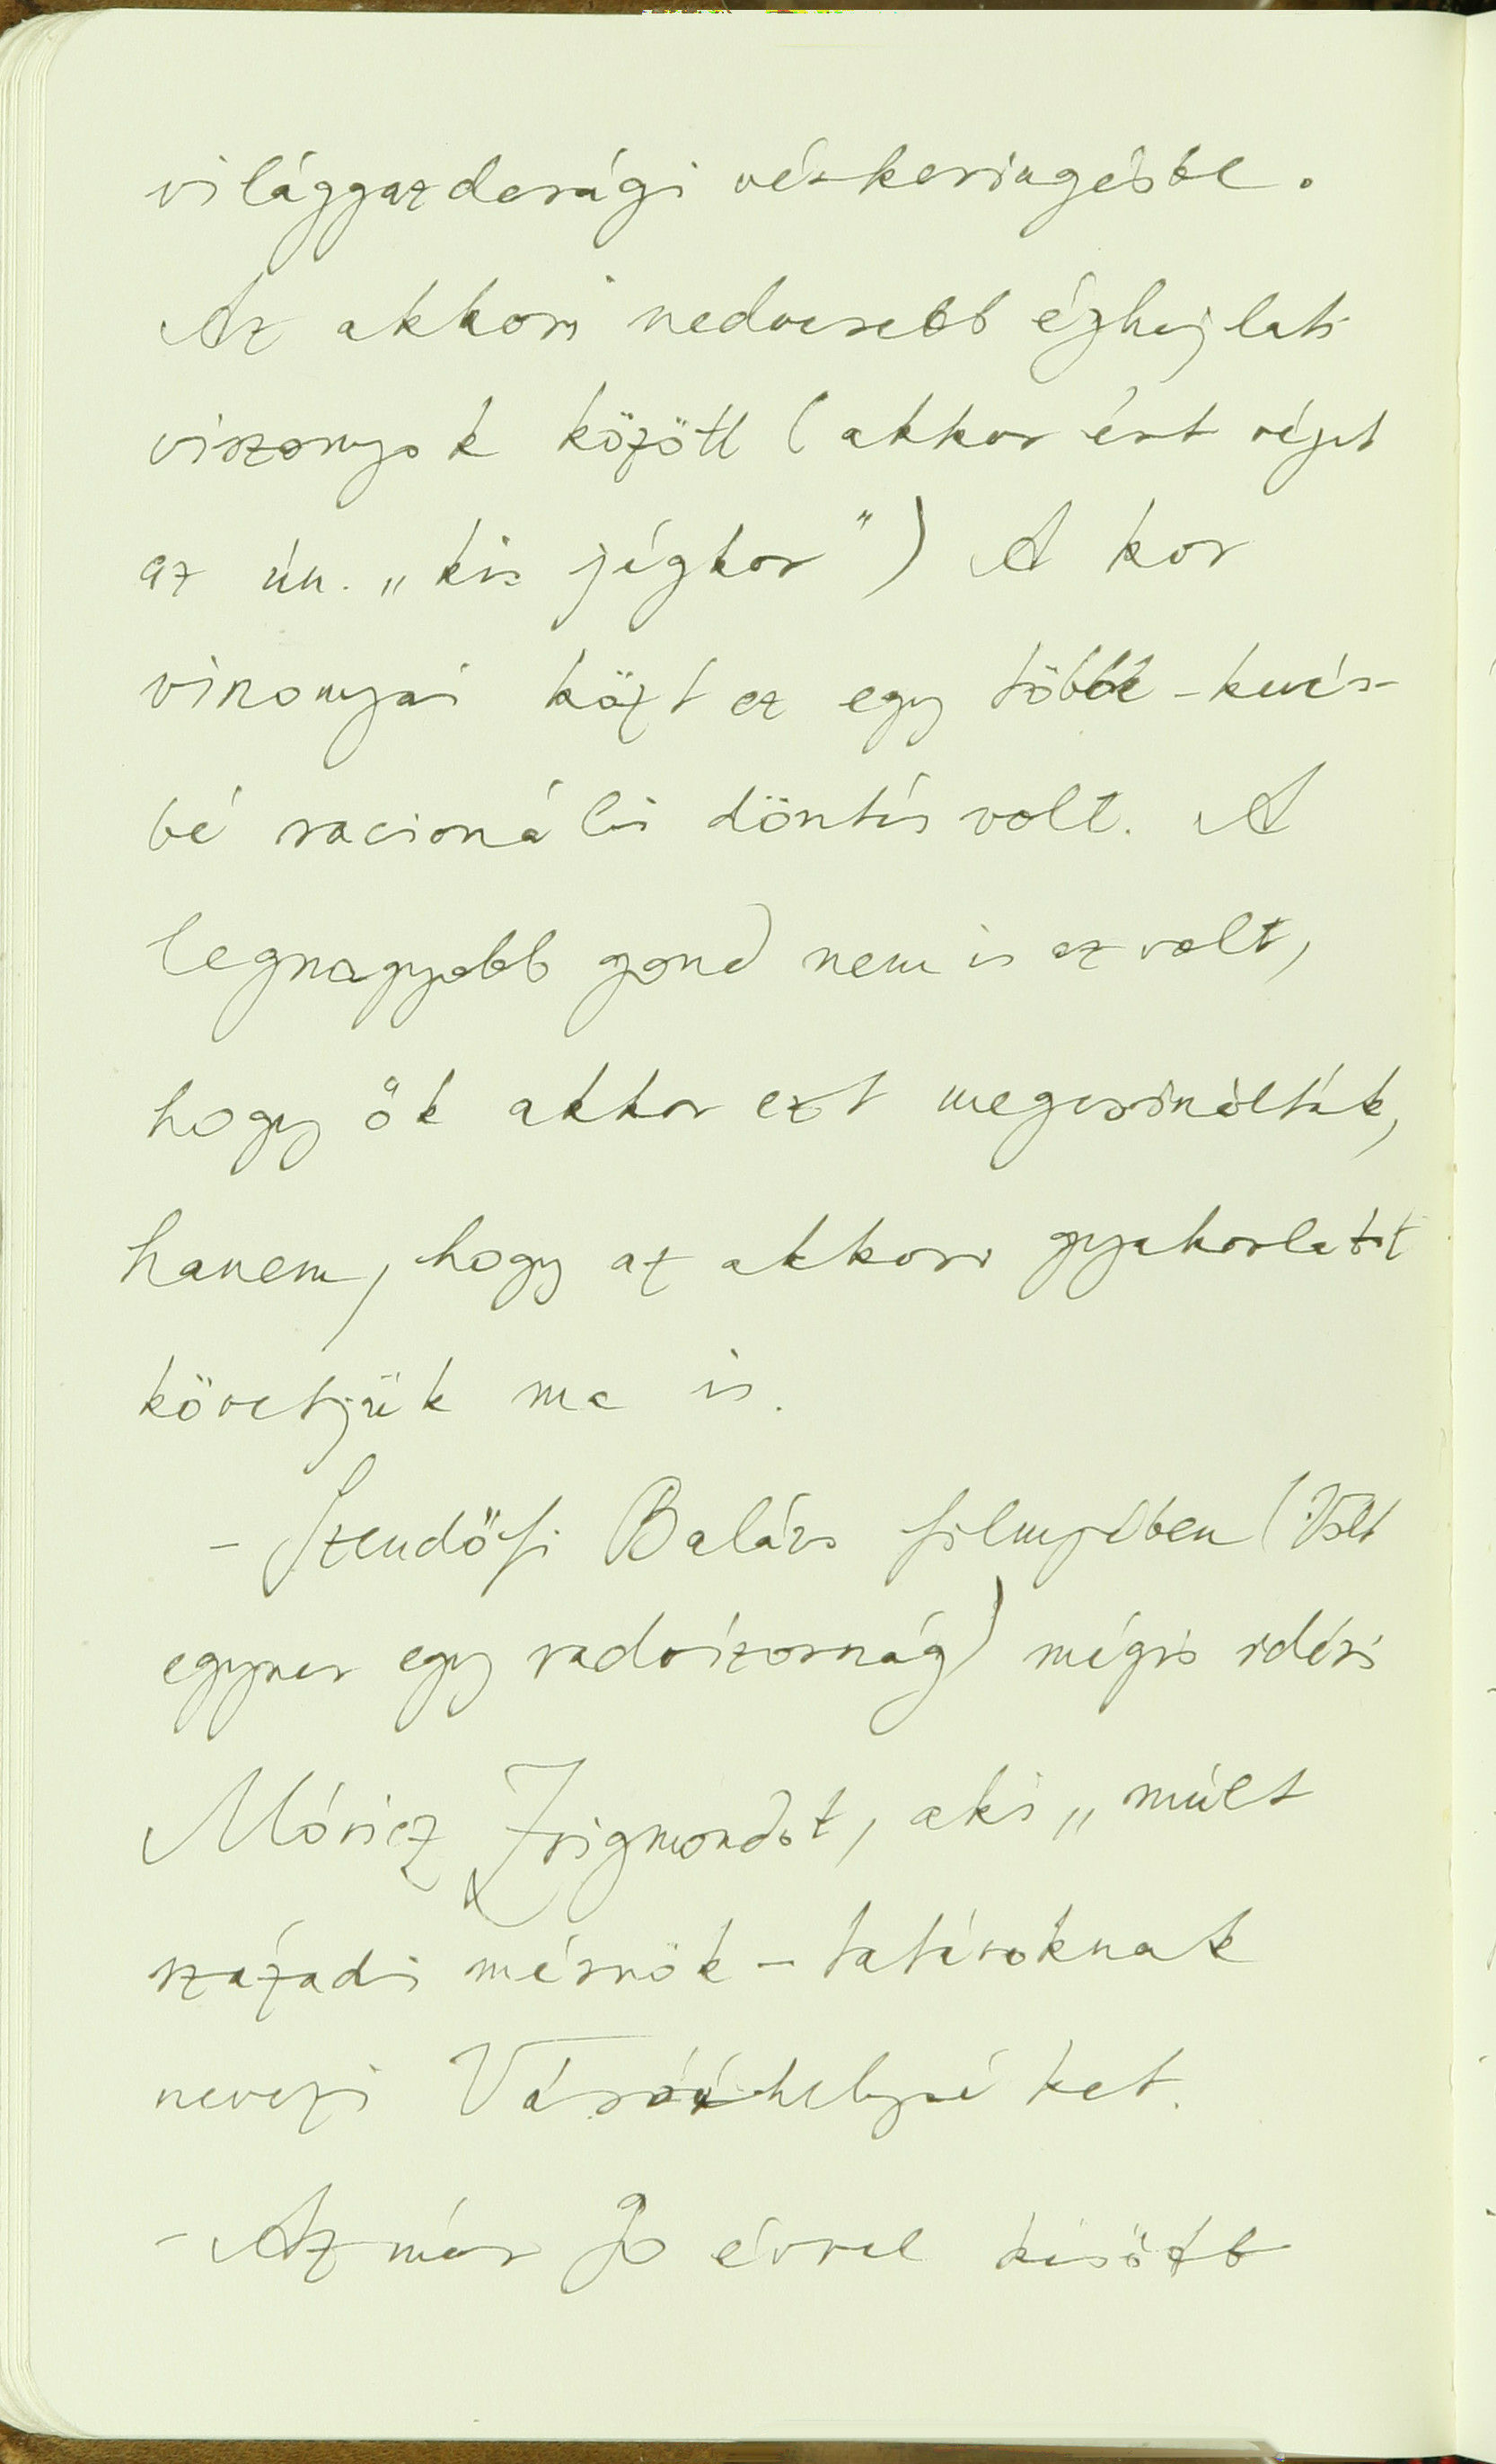 világgazdasági vérkeringésbe.
Az akkori nedvesebb éghajlati
viszonyok között (akkor ért véget
az ún. „kis jégkor") A kor
viszonyai közt ez egy többé-kevés-
bé racionális döntés volt. A
legnagyobb gond nem is az volt,
hogy ők akkor ezt megcsinálták,
hanem, hogy az akkori gyakorlatot
követjük ma is.
- Szendőfi Balázs filmjében (Volt
egyszer egy vadvízország) mégis idézi
Móricz Zsigmondot, aki „múlt
századi mérnök-tatároknak
nevezi Vásárhelyiéket.
- Az már 70 évvel később